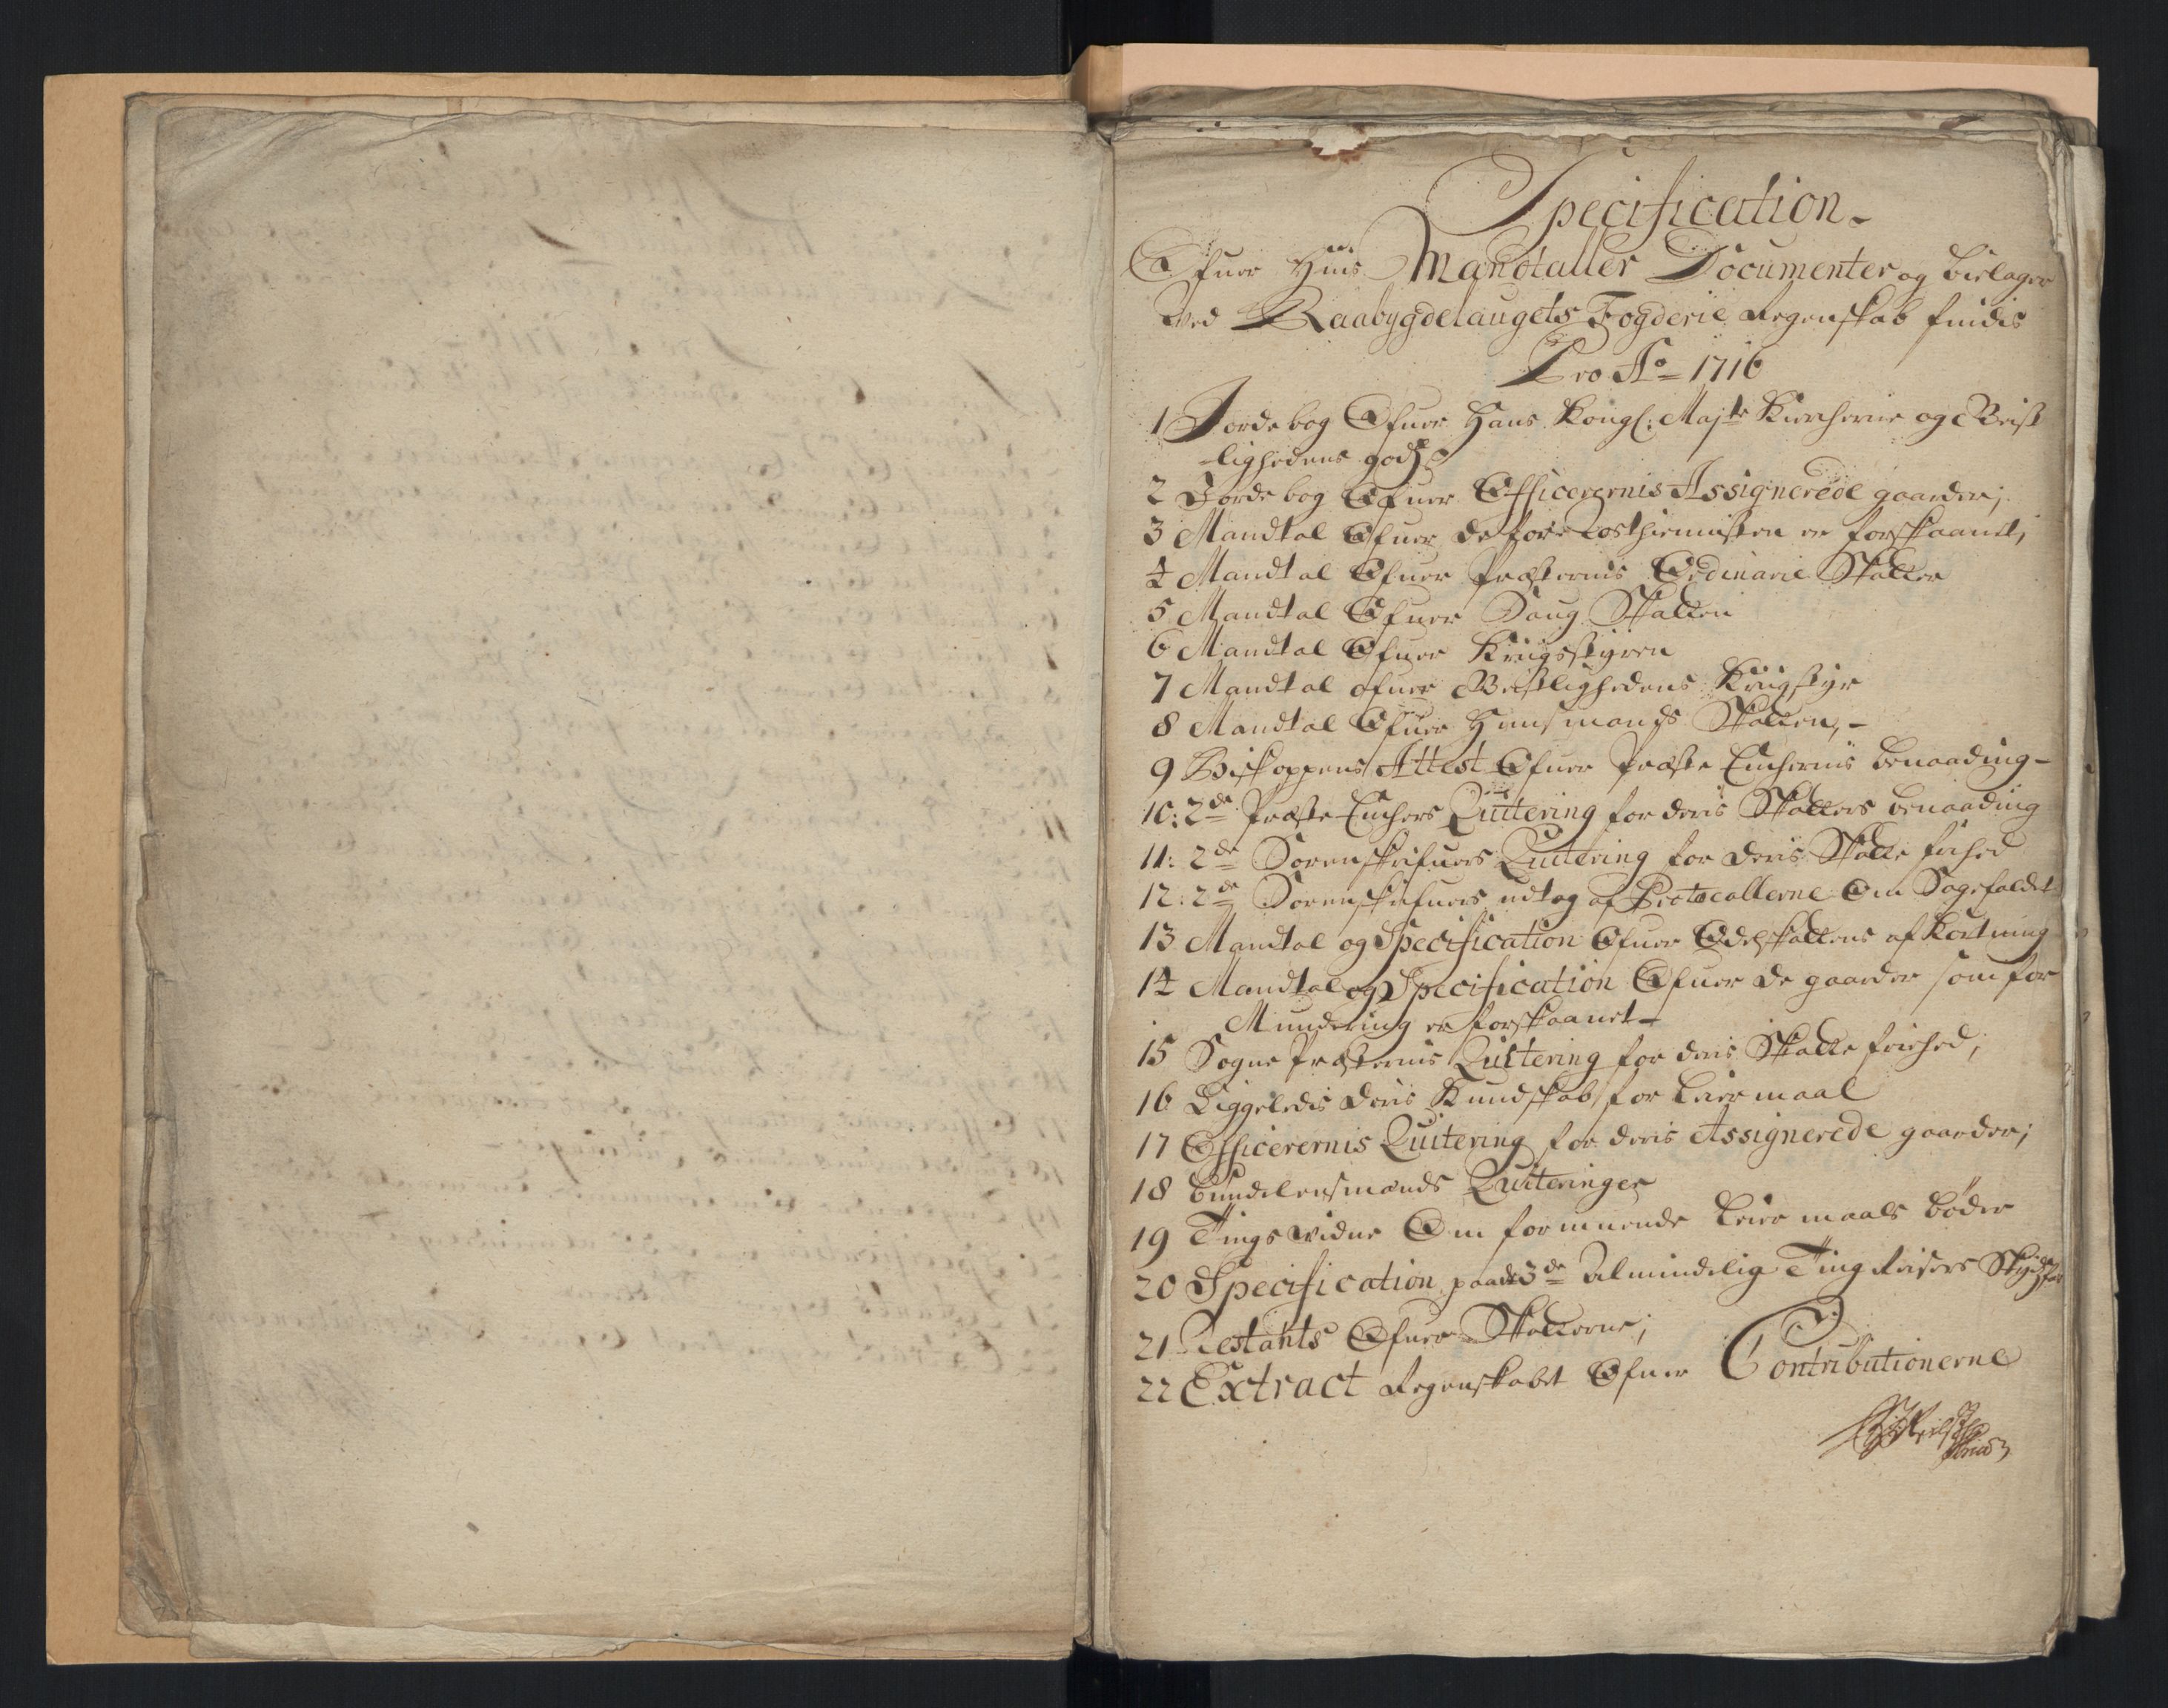 Specification
Ofuer Huis Mandtaller Documenter og bielager
ved Raabygdelaugets Fogderie Regenskab findis
Pro Ao 1716
1 Jordebog Ofuer Hans Kongl: Majts Kircherne og Geist
-lighedens gods
2 Jordebog Ofuer Officerernis Assignerede gaarder;
3 Mandtal Ofuer de for Rosthienisten er forskaanet,
4 Mandtal Ofuer Præsternis Ordinarie Skatter
5 Mandtal Ofuer Saug Skatten
6 Mandtal Ofuer Krigsstyren
7 Mandtal ofuer Geistlighedens Krigstyr
8 Mandtal Ofuer Huusmands Skatten,-
9 Biskoppens Attest Ofuer Præste Enchernis benaading-
10: 2de Præste Enchers Quitering for deris Skatters benaading
11: 2de Sorenskrifuers Quitering for deris Skatte frihed
12: 2de Sorenskrifuers udtog af Protocollerne Om Sagefaldet
13 Mandtal og Specification Ofuer Odelskattens afkortning
14 Mandtal og Specification Ofuer de gaarder som for
Mundering er forskaanet-
15 Sogne Præsternis Quitering for deris Skatte friehed,
16 Liggeledis deris Kundskab for Leiermaal
17 Officerernis Quitering for deris Assignerede gaarder;
18 bundelensmands Quiteringer
19 Tingsvidne Om formuende Leiermaals bøder
20 Specification paa de 3de Almindelig Ting Reisers
21 Restants Ofuer Skatterne;
22 Extract Regenskabet Ofuer Contributionerne